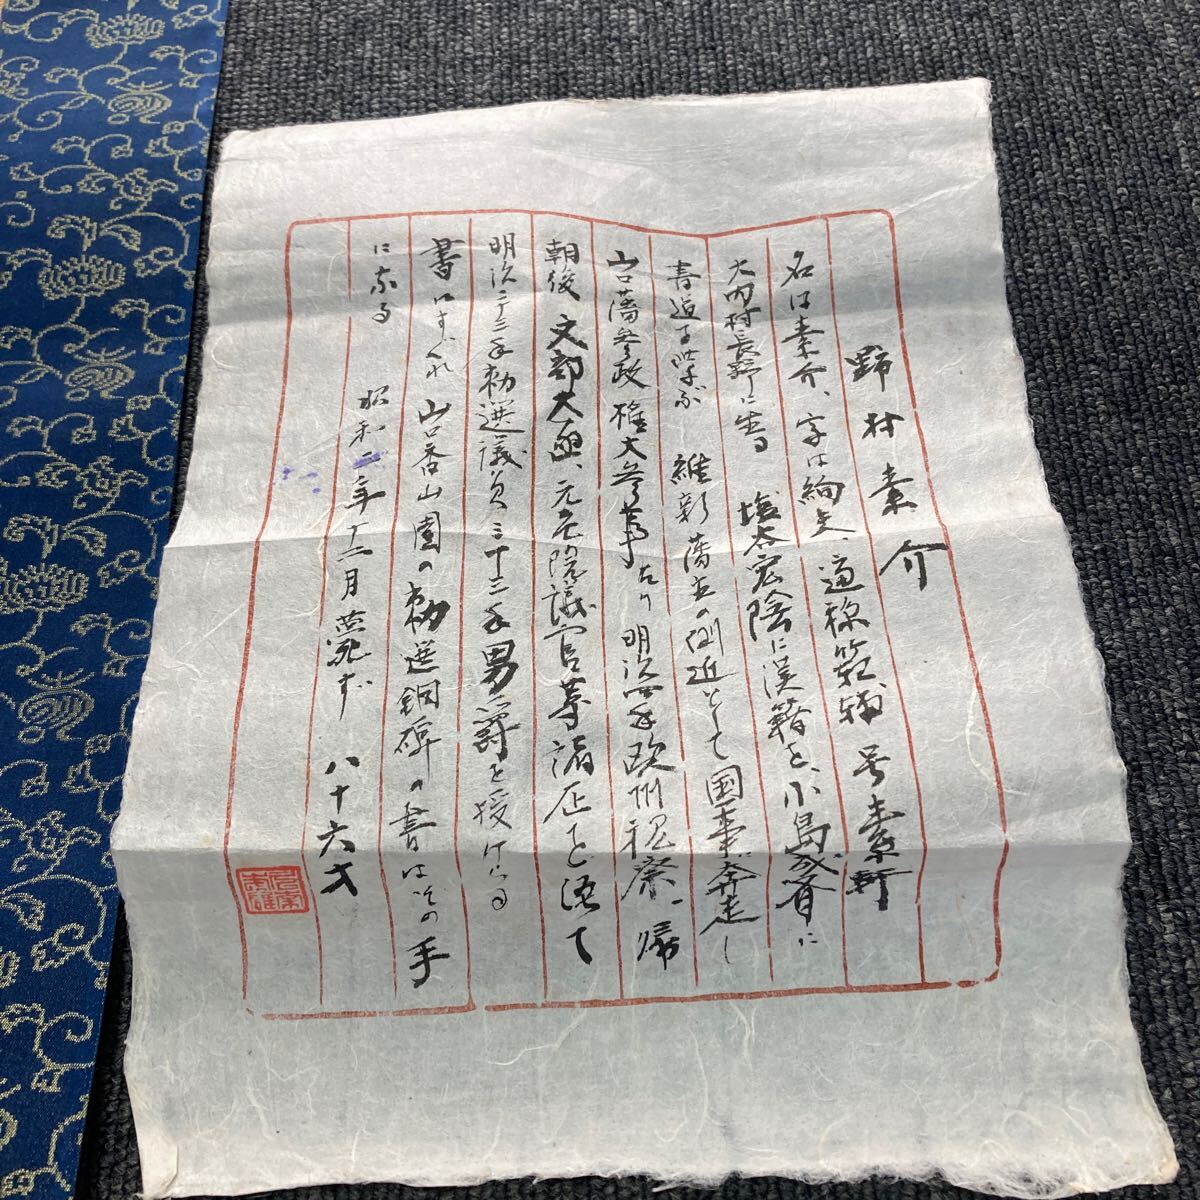 野村素介
名は素介、字は絢夫、通称範輔 号素軒
大内村長野に生る 塩谷宏陰に漢籍を、小島成斎に
書道を学ぶ 維新 藩主の側近として国事に奔走し
山口藩参政権大参事たり 明治四年欧州視察、帰
朝後 文部大丞、元老院議官等諸庄を歴て
明治二十三年勅選議員 三十三年男爵を授けらる
書にすぐれ 山口香山園の勅選銅碑の書はその手
になる 昭和二年十二月薨ず 八十六才